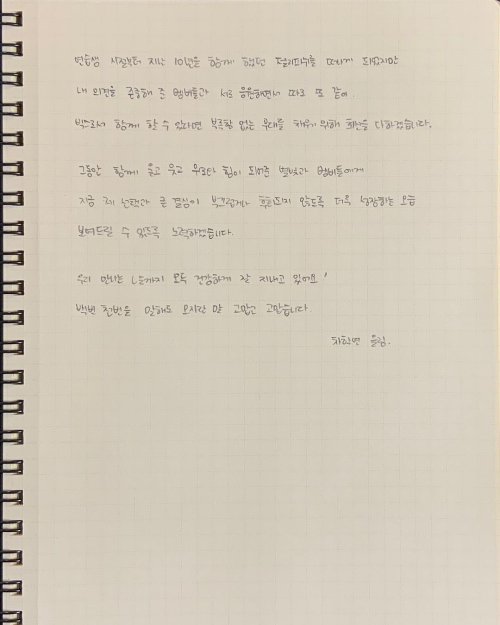 연습생 시절부터 지난 10년을 함께 했던 젤리피쉬를 떠나게 되었지만
내 의견을 존중해 준 멤버들과 서로 응원하면서 따로 또 같이.
빅스로서 함께 할 수 있다면 부족함 없는 무대를 채우기 위해 최선을 다하겠습니다.
그동안 함께 울고 웃고 위로와 힘이 되어준 별빛과 멤버들에게
지금 제 선택과 큰 결심이 부끄럽거나 후회되지 않도록 더욱 성장하는 모습
보여드릴 수 있도록 노력하겠습니다.
우리 만나는 순간까지 모두 건강하게 잘 지내고 있어요!
백번 천번을 말해도 모자란 말 고맙고 고맙습니다
차학연 올림.